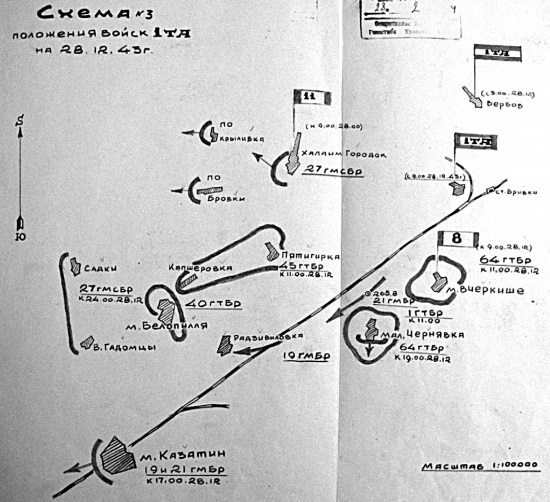 Схема №3
положения войск 1ТА
на 28.12.43г.
22
2
4
1ТА
(с 3.00.28.12)
Вербов
11
(к 9.00.28.00)
ПО
Крыливка
Халаим Городок
27 ГМСБР
ПО
Бровки
1ТА
(с 9.00.28.12.43г)
ст. Бривки
С
Ю
8
(к 9.00.28.12)
64 ГТБР
к 11.00.28.12
м. Вчеркише
Пятигирка
45 ГТБР
к 11.00.28.12
Капшеровка
Садки
27 ГМСБР
к 24.00.28.12
40 ГТБР
м. Белопилля
В. Гадомцы
265.8
21 ГМБР
1 ГТБР
к 11.00
Мал. Чернявка
64 ГТБР
к 19.00.28.12
Радзивиловка
19 ГМБР
м. Казатин
19 и 21 ГМБР
к 17.00.28.12
Масштаб 1:100000